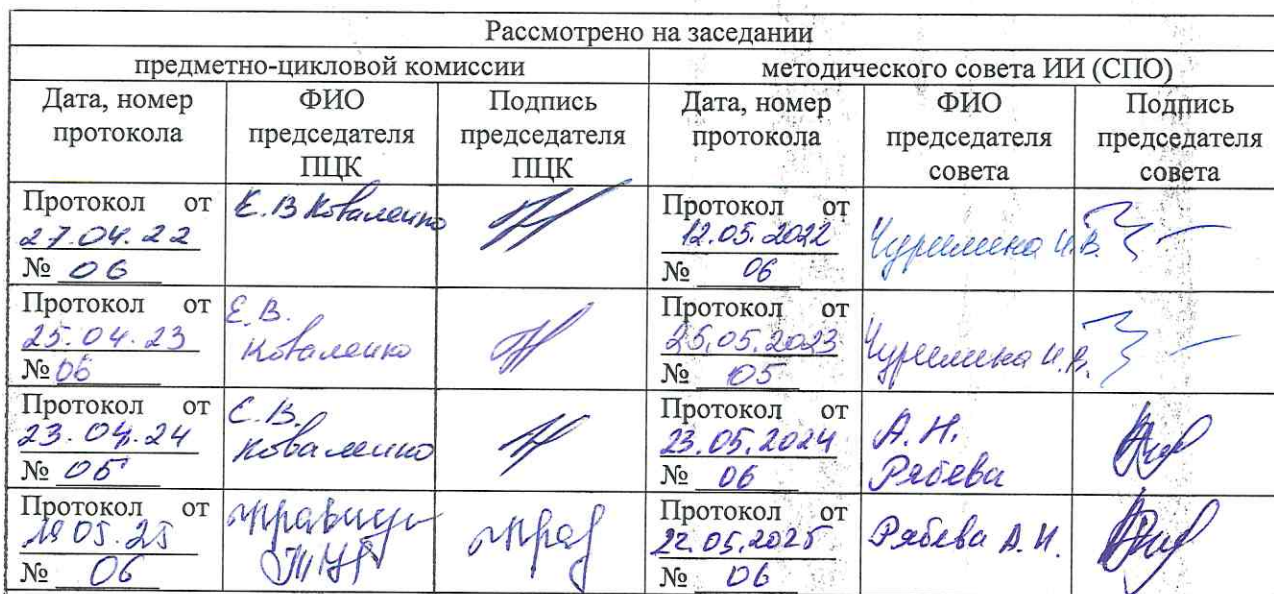 Рассмотрено на заседании
предметно-цикловой комиссии
методического совета ИИ (СПО)
Дата, номер
протокола
ФИО
председателя
ПЦК
Подпись
председателя
ПЦК
Дата, номер
протокола
ФИО
председателя
совета
Подпись
председателя
совета
Протокол от
27.04.22
№ 06
Е.В Коваленко
Протокол от
12.05.2022
№ 06
Чурилина И.В.
Протокол от
25.04.23
№ 06
Е.В.
Коваленко
Протокол от
25.05.2023
№ 05
Чурилина И.В.
Протокол от
23.04.24
№ 05
Е.В.
Коваленко
Протокол от
23.05.2024
№ 06
А.Н.
Рябева
Протокол от
05.25
№ 06
Протокол от
22.05.2025
№ 06
Рябева А.Н.